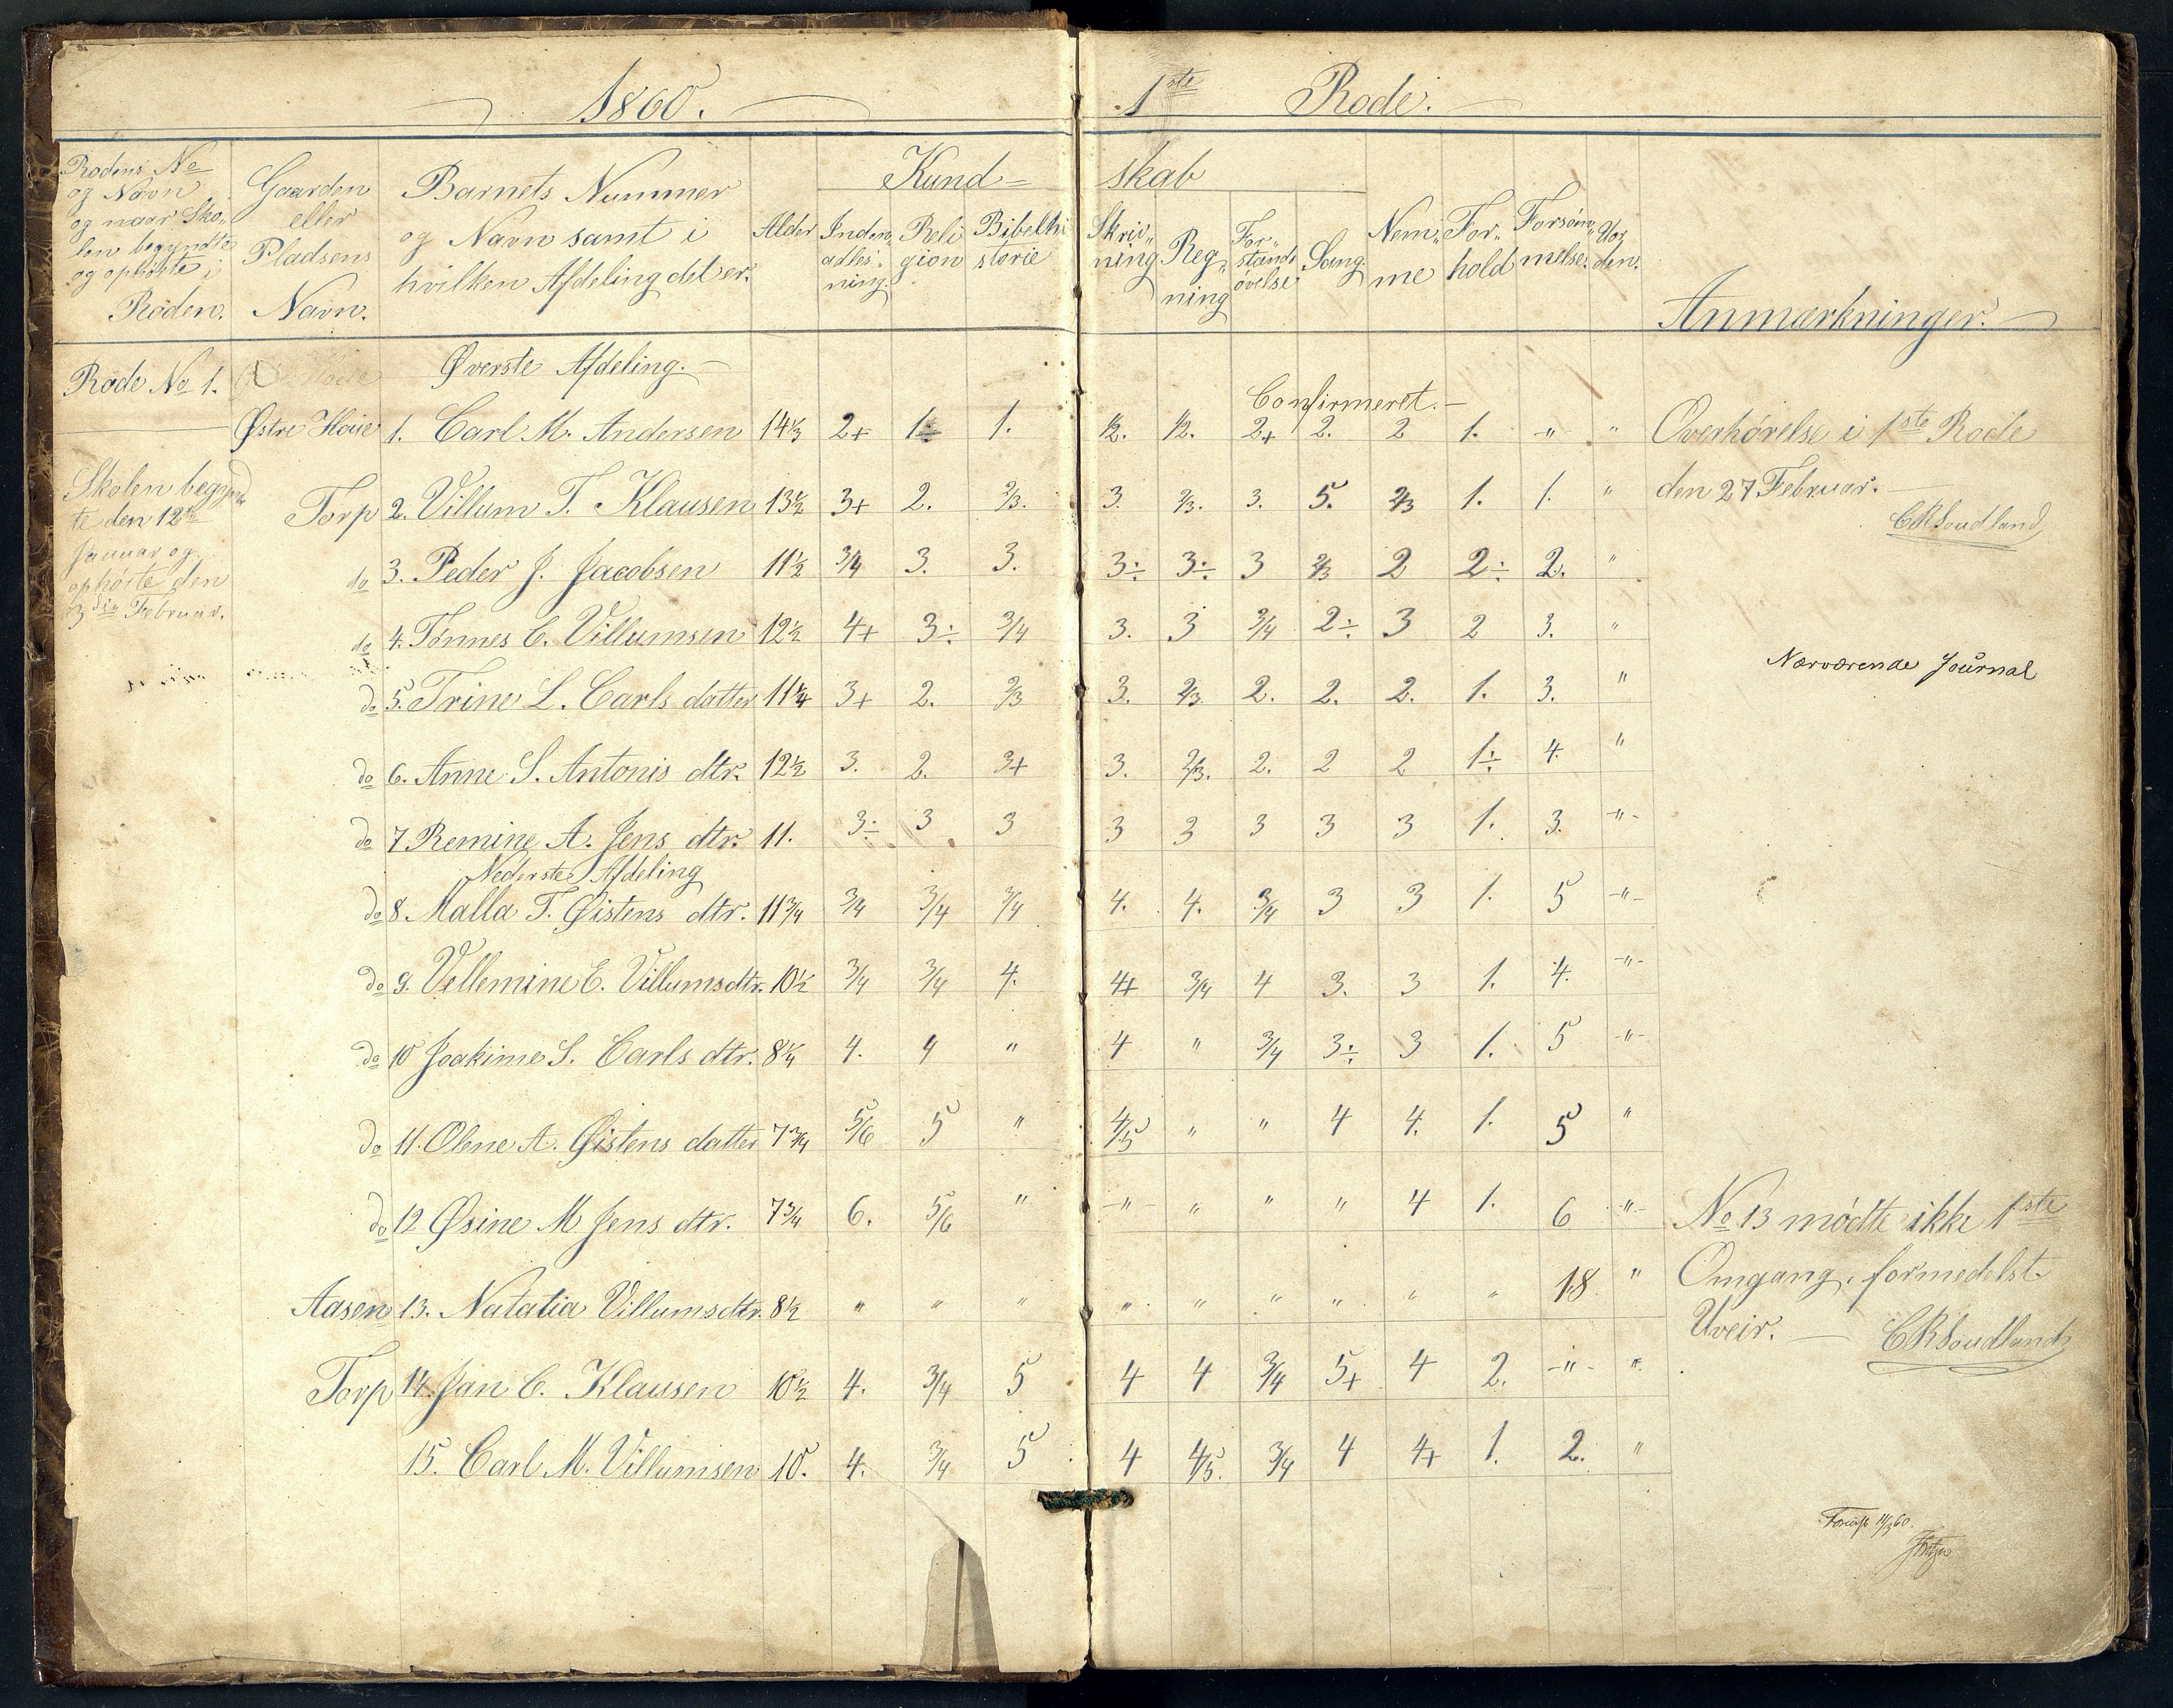 1860.
1ste Rode.
Rodens No og Navn og naar Skolen begyndte og ophørte i Roden.
Gaarden eller Pladsens Navn.
Barnets Nummer og Navn samt i hvilken Afdeling det er.
Alder
Kund=
skab
Inden„ adlæs„ ning.
Reli gion
Bibelhi storie
Skriv„ ning
Reg„ ning
For„ stands øvelse
Sang.
Nem„ me
For„ hold
Forsøm„ melse.
Uor den.
Anmærkninger.
Rode No 1.
Øverste Afdeling.
Confirmeret.
Østre Høie 1. Carl M. Andersen 14⅓ 2+ 1÷ 1. ½. ½. 2+ 2. 2 1. " "
Torp 2. Villum T. Klausen 13½ 3+ 2. 2/3. 3. 2/3. 3. 5. 2/3 1. 1. "
do 3. Peder J. Jacobsen 11½ 3/4 3. 3. 3÷ 3÷ 3 2/3 2 2÷ 2. "
do 4. Tønnes C. Villumsen 12½ 4+ 3÷ 3/4 3. 3 3/4 2÷ 3 2 3. "
do 5. Trine L. Carls datter 11¼ 3+ 2. 2/3 3. 2/3 2. 2. 2. 1. 3. "
do 6. Anne S. Antonis dtr. 12½ 3. 2. 3+ 3. 2/3. 2. 2 2 1÷ 4. "
do 7 Remine A. Jens dtr. 11. 3÷ 3 3 3 3 3 3 3 1. 3. "
Nederste Afdeling
do 8. Malla T. Øistens dtr. 11¾ 3/4 3/4 3/4 4. 4. 3/4 3 3 1. 5 "
do 9. Vellemine E. Villumsdtr. 10½ 3/4 3/4 4. 4+ 3/4 4 3. 3 1. 4. "
do 10 Joakime S. Carls dtr. 8¼ 4. 4 " 4 " 3/4 3÷ 3 1. 5 "
do 11. Olene A. Øistens datter 7¾ 5/6 5 " 4/5 " " 4 4. 1. 5 "
do 12 Øsine M Jens dtr. 7¾ 6. 5/6 " " " " " 4 1. 6 "
Aasen 13. Natalia Villumsdtr. 8½ " " " " " " " " " 18 "
Torp 14. Jan C. Klausen 10½ 4. 3/4 5 4 4 3/4 5+ 4 2. " "
15. Carl M. Villumsen 10. 4. 3/4 5 4 4/5. 3/4 4 4+ 1. 2. "
Skolen begynd„
te den 12te
Januar og
ophørte den
3die Februar.
Overhørelse i 1ste Rode
den 27 Februar.
CRSoudland
Nærværende Journal
No 13 mødte ikke 1ste
Omgang, formedelst
Uveir. CRSoudland